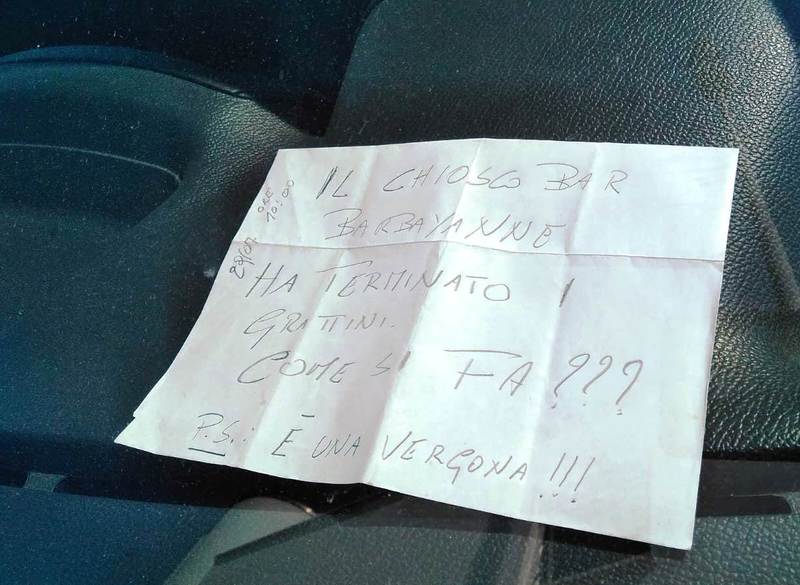 IL CHIOSCO BAR
BARBAYANNE
HA TERMINATO I
GRATTINI.
COME SI FA ???
P.S.: È UNA VERGONA!!!
28/07 ORE
10:00